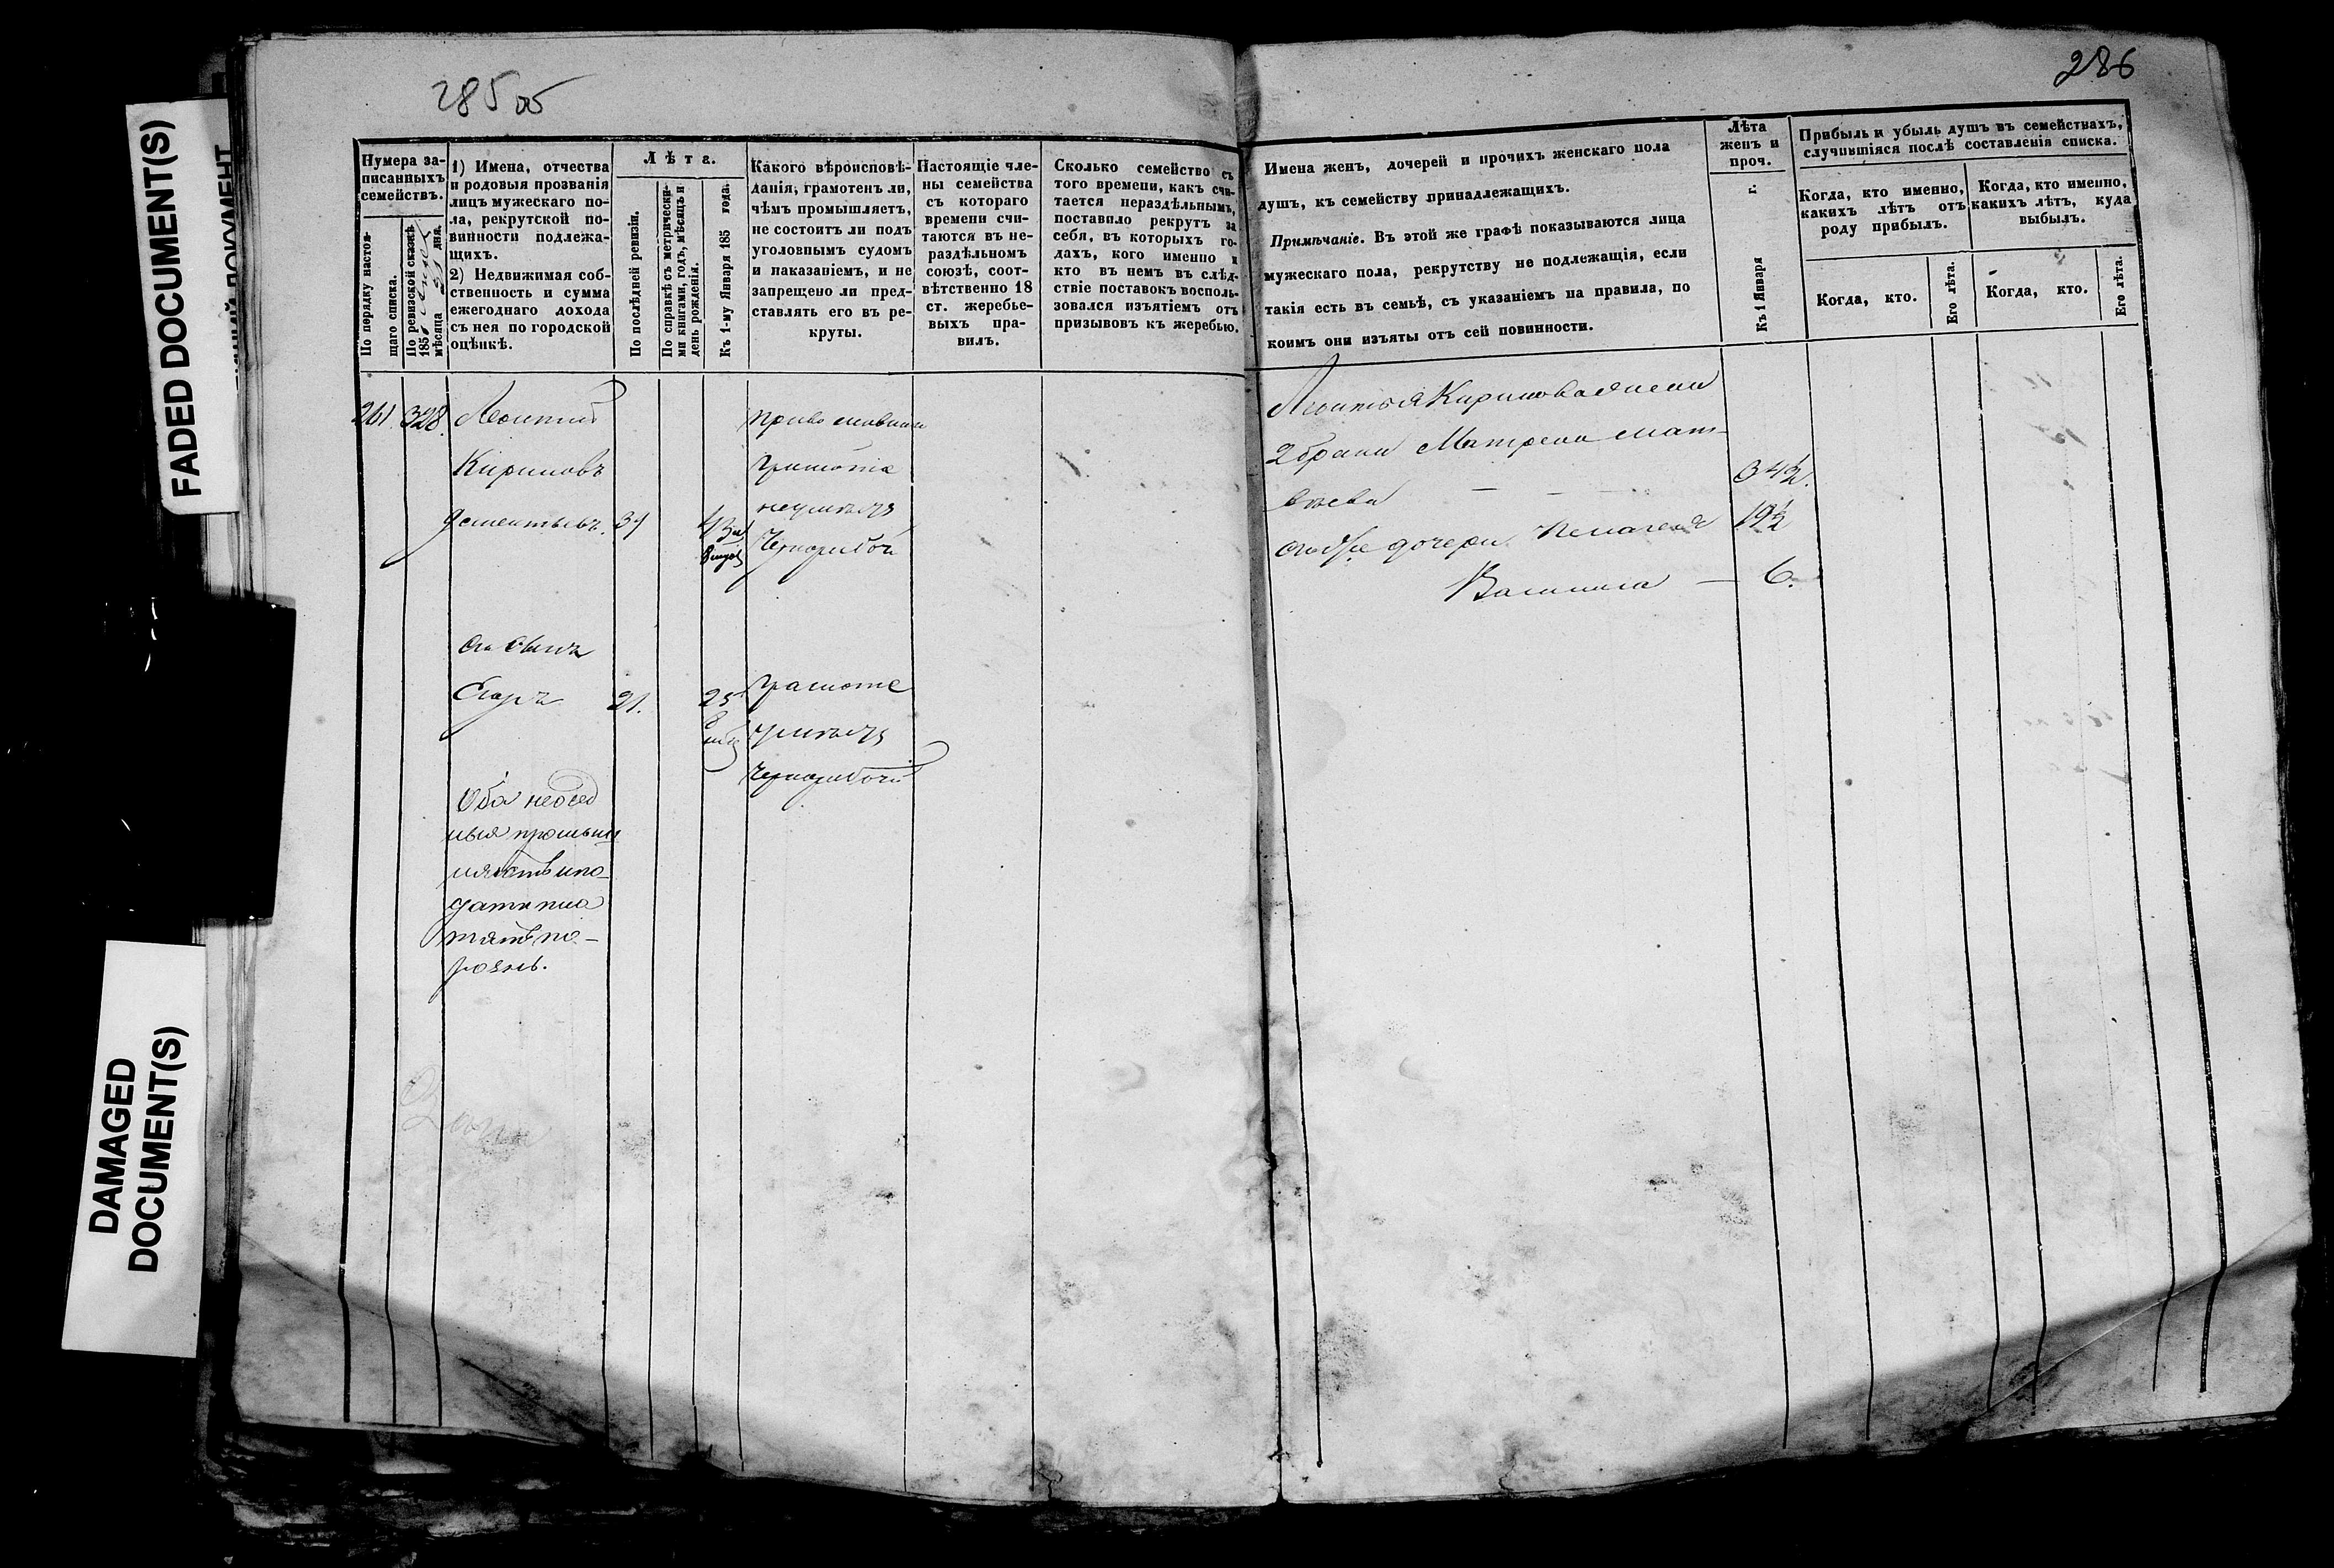 FADED DOCUMENT(S)
DAMAGED
DOCUMENT(S)
285 об
Нумера за-
писанныхъ
семействъ.
По порядку настоя-
щаго списка.
По ревизской сказкѣ
185
мѣсяца 21 дня.
1) Имена, отчества
и родовыя прозванія
лицъ мужескаго по-
ла, рекрутской по-
винности подлежа-
щихъ.
2) Недвижимая соб-
ственность и сумма
ежегоднаго дохода
съ нея по городской
оцѣнкѣ.
Лѣта.
По послѣдней ревизіи.
По справкѣ съ метрически-
ми книгами, годъ, мѣсяцъ и
день рожденія.
Къ 1-му Января 185 года.
Какого вѣроисповѣ-
данія, грамотенъ ли,
чѣмъ промышляетъ,
не состоитъ ли подъ
уголовнымъ судомъ
и наказаніемъ, и не
запрещено ли пред-
ставлять его въ ре-
круты.
Настоящіе чле-
ны семейства
съ котораго
времени счи-
таются въ не-
раздѣльномъ
союзѣ, соот-
вѣтственно 18
ст. жеребье-
выхъ пра-
вилъ.
Сколько семейство съ
того времени, какъ счи-
тается нераздѣльнымъ,
поставило рекрутъ за
себя, въ которыхъ го-
дахъ, кого именно и
кто въ немъ въ слѣд-
ствіе поставокъ восполь-
зовался изъятіемъ отъ
призывовъ къ жеребью.
261 328 Леонтий
Кириловъ
Дементьевъ
православнаго
грамоте
неумѣетъ
Чернорабочій
его сынъ
Егоръ 21. 25
грамоте
умѣетъ
чернорабочій
Оба
подати пла
тятъ по-
рознь.
286
Имена женъ, дочерей и прочихъ женскаго пола
душъ, къ семейству принадлежащихъ.
Примѣчаніе. Въ этой же графѣ показываются лица
мужескаго пола, рекрутству не подлежащія, если
такія есть въ семьѣ, съ указаніемъ на правила, по
коимъ они изъяты отъ сей повинности.
Лѣта
женъ и
проч.
Къ 1 Января г.
Прибыль и убыль душъ въ семействахъ,
случившіяся послѣ составленія списка.
Когда, кто именно,
какихъ лѣтъ отъ
роду прибылъ.
Когда, кто именно,
какихъ лѣтъ, куда
выбылъ.
Когда, кто.
Его лѣта.
Когда, кто.
Его лѣта.
Леонтья Кирилова жена
2 брака Матрена Мат-
вѣева 34½.
его же дочери Пелагея 19½
Васили­са — 6.